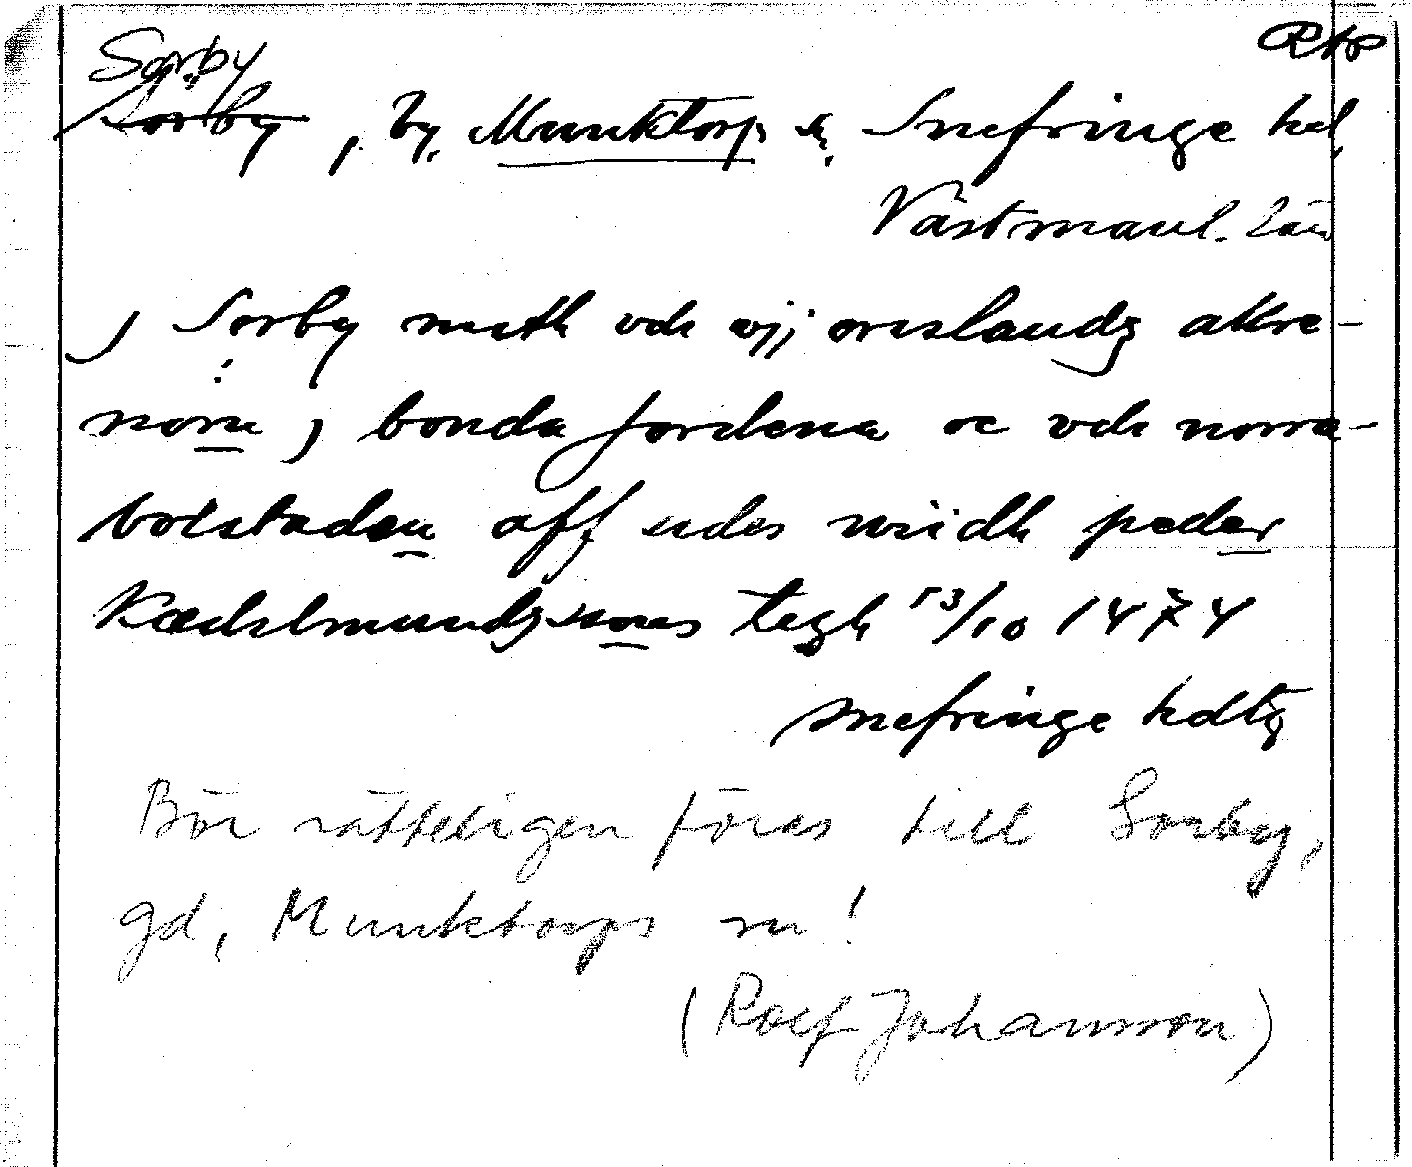 Sorby
Sörby, by, Munktorp sn, Snefringe hd,
Västmanl. län
J Sörby meth vdi vij oreslandz akre-
nöm j bonda jordena oc vdi norra-
bolstaden aff sides wiidh peder
Kædelmundzsons tegh 13/10 1474
snefringe hdtg
Bör rätteligen föras till Sorby,
gd, Munktorps sn!
(Rolf Johansson)